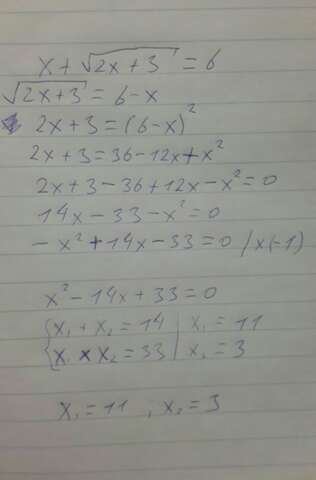 x + √(2x + 3) = 6
√(2x + 3) = 6 - x
2x + 3 = (6 - x)²
2x + 3 = 36 - 12x + x²
2x + 3 - 36 + 12x - x² = 0
14x - 33 - x² = 0
- x² + 14x - 33 = 0 / x(-1)
x² - 14x + 33 = 0
{ x₁ + x₂ = 14 | x₁ = 11
{ x₁ × x₂ = 33 | x₂ = 3
x₁ = 11 , x₂ = 3